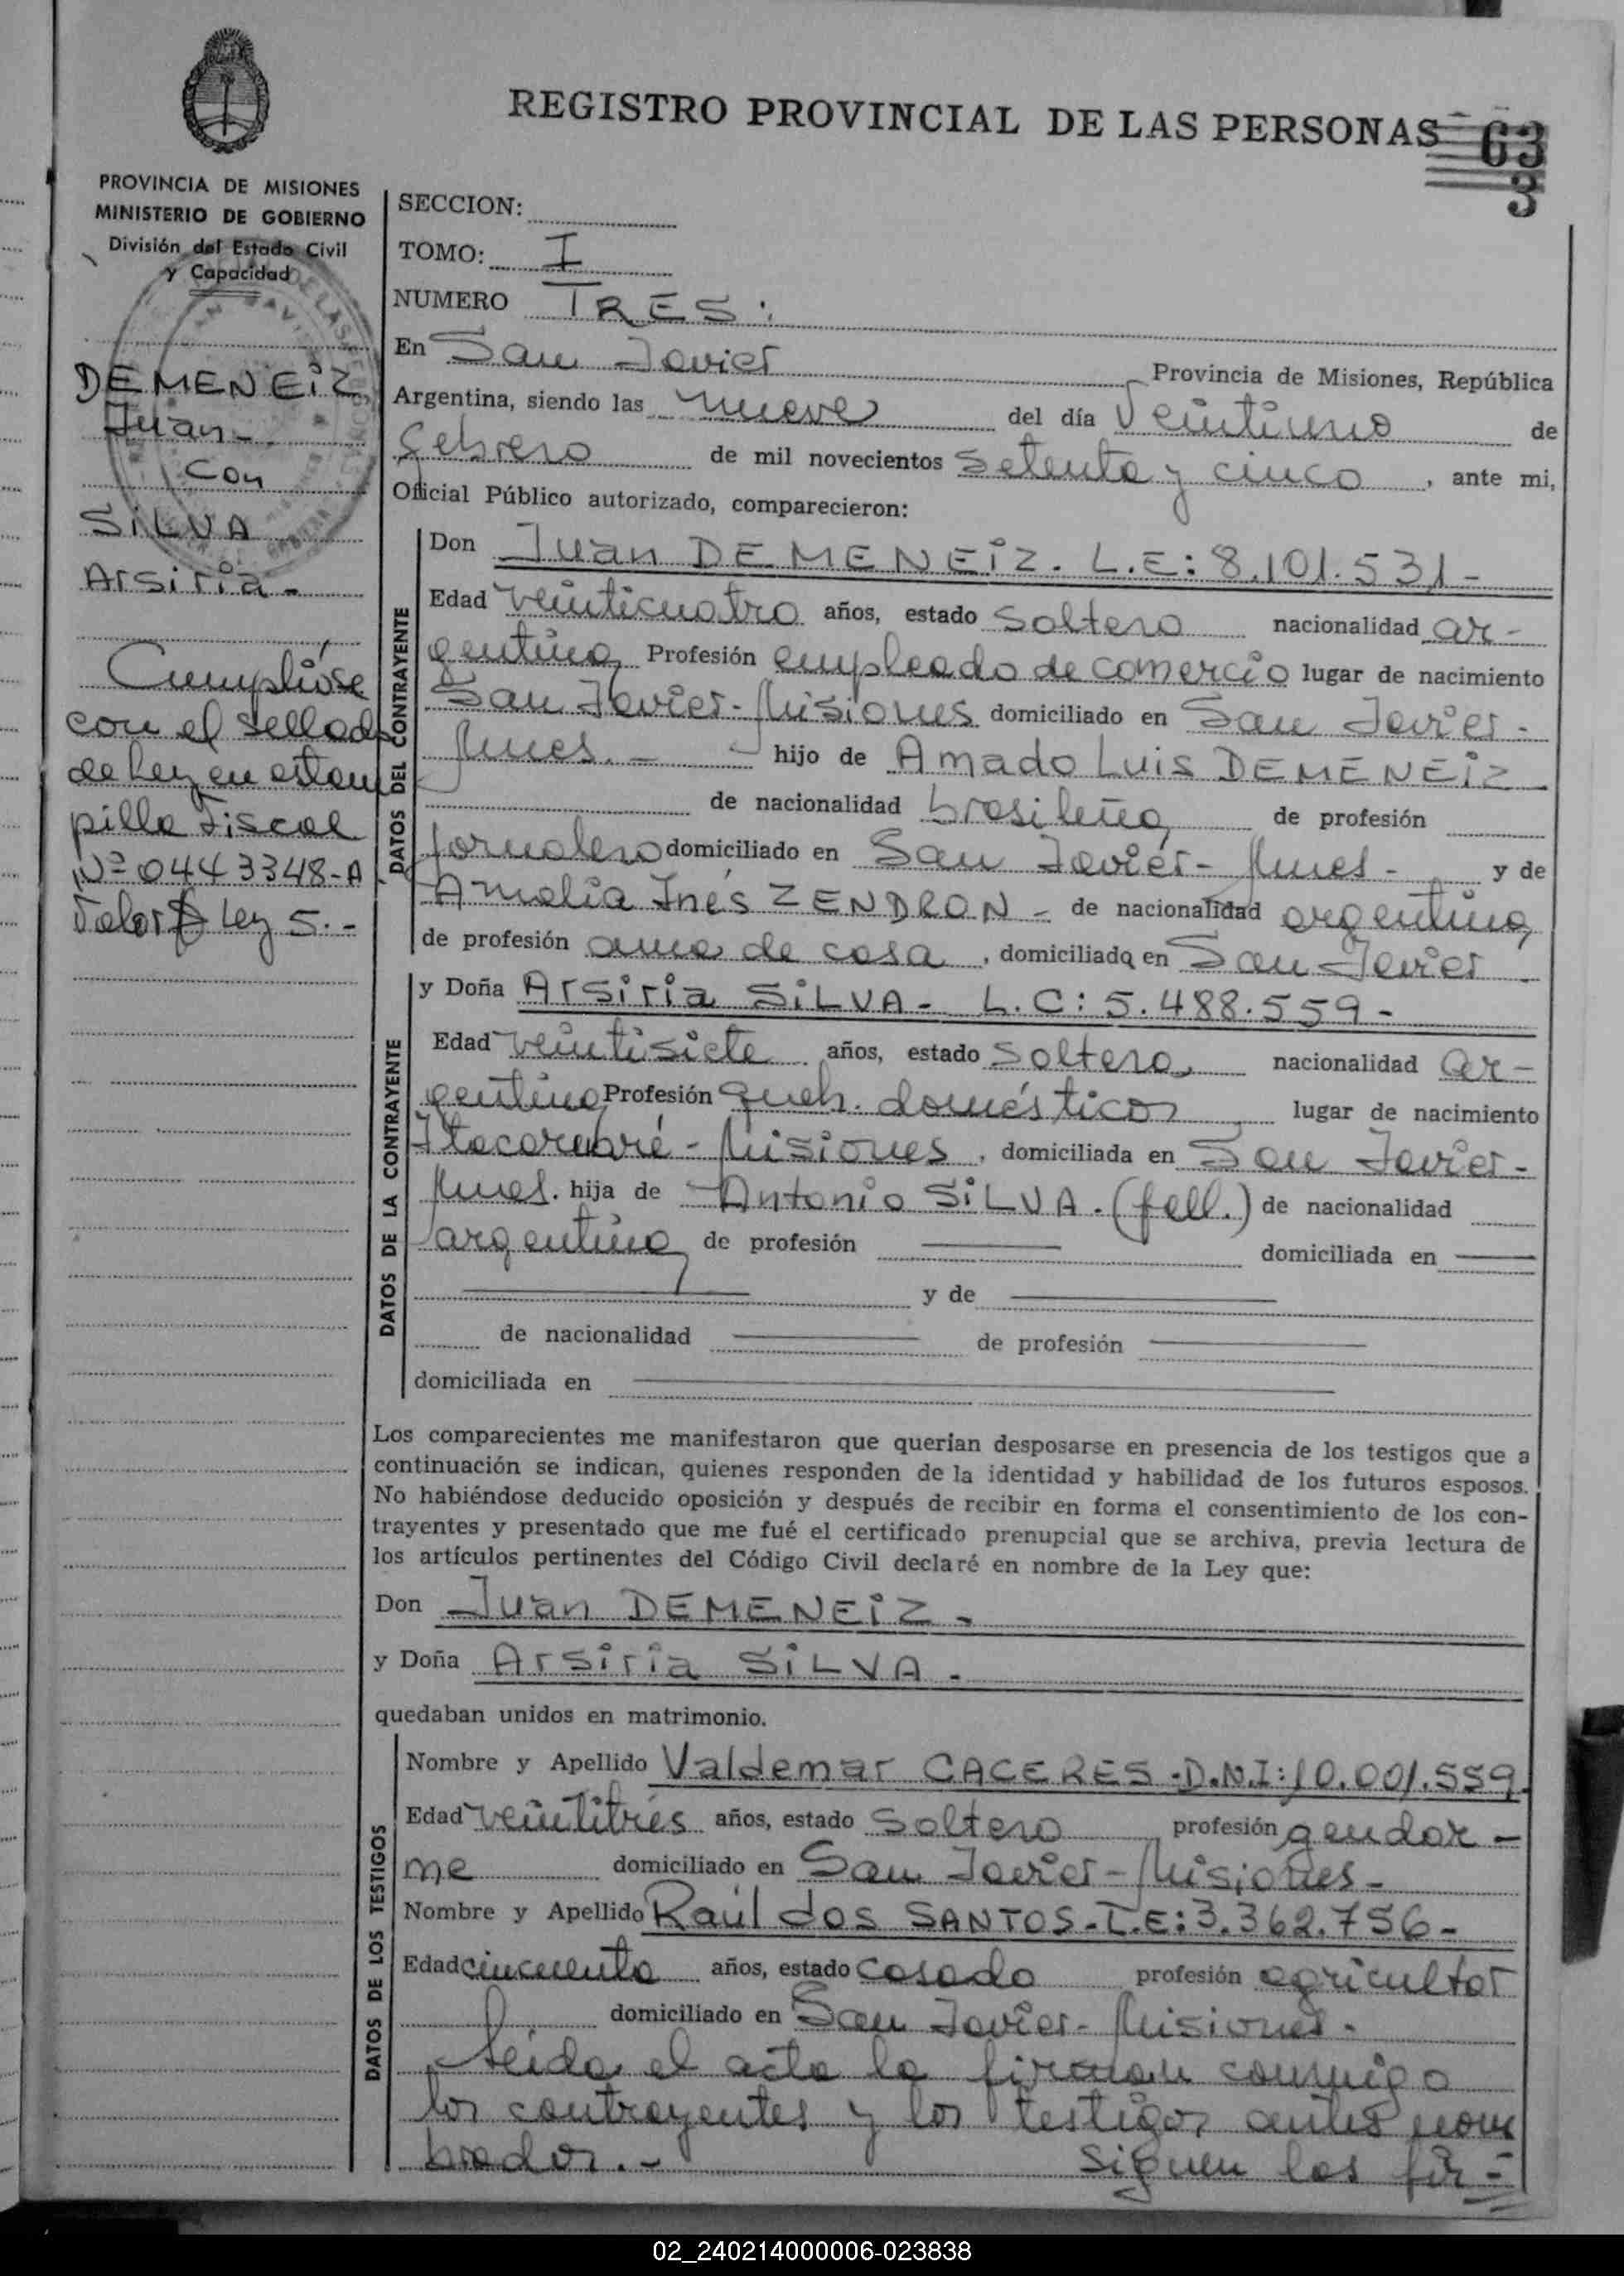 REGISTRO PROVINCIAL DE LAS PERSONAS
63
3
PROVINCIA DE MISIONES
MINISTERIO DE GOBIERNO
División del Estado Civil
y Capacidad
DEMENEiZ
Juan-
con
SiLVA
Arsiria-
Cumplióse
con el sellado
de Ley en estam
pilla Fiscal
Nº 0443348-A
Valor $ Ley 5.-
SECCION:
TOMO: I
NUMERO TRES:
En San Javier Provincia de Misiones, República
Argentina, siendo las nueve del día Veintiuno de
febrero de mil novecientos setenta y cinco, ante mi,
Oficial Público autorizado, comparecieron:
DATOS DEL CONTRAYENTE
Don Juan DEMENEiZ. L.E: 8.101.531-
Edad veinticuatro años, estado soltero nacionalidad ar-
gentina Profesión empleado de comercio lugar de nacimiento
San Javier-Misiones domiciliado en San Javier-
Mnes.- hijo de Amado Luis DEMENEiZ
de nacionalidad brasileña de profesión
jornalero domiciliado en San Javier-Mnes- y de
Amalia Inés ZENDRON- de nacionalidad argentina
de profesión ama de casa, domiciliada en San Javier
DATOS DE LA CONTRAYENTE
y Doña Arsiria SiLVA- L.C: 5.488.559-
Edad veintisiete años, estado soltera, nacionalidad ar-
gentina Profesión queh. domésticos lugar de nacimiento
Itacaruaré-Misiones, domiciliada en San Javier-
Mnes. hija de Antonio SiLVA. (fell.) de nacionalidad
argentina de profesión domiciliada en
y de
de nacionalidad de profesión
domiciliada en
Los comparecientes me manifestaron que querían desposarse en presencia de los testigos que a
continuación se indican, quienes responden de la identidad y habilidad de los futuros esposos.
No habiéndose deducido oposición y después de recibir en forma el consentimiento de los con-
trayentes y presentado que me fué el certificado prenupcial que se archiva, previa lectura de
los artículos pertinentes del Código Civil declaré en nombre de la Ley que:
Don Juan DEMENEiZ-
y Doña Arsiria SiLVA-
quedaban unidos en matrimonio.
DATOS DE LOS TESTIGOS
Nombre y Apellido Valdemar CACERES-D.N.I:10.001.559.
Edad veintitrés años, estado soltero profesión gendar-
me domiciliado en San Javier-Misiones-
Nombre y Apellido Raúl dos SANTOS-L.E:3.362.756-
Edad cincuenta años, estado casado profesión agricultor
domiciliado en San Javier-Misiones.
Leida el acta la firman conmigo
los contrayentes y los testigos antes nom
brados.- siguen las fir=
02_240214000006-023838